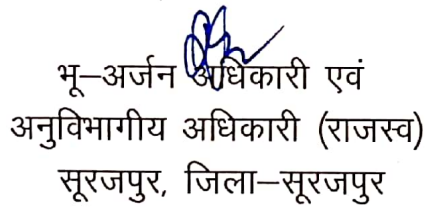 भू–अर्जन अधिकारी एवं
अनुविभागीय अधिकारी (राजस्व)
सूरजपुर, जिला–सूरजपुर